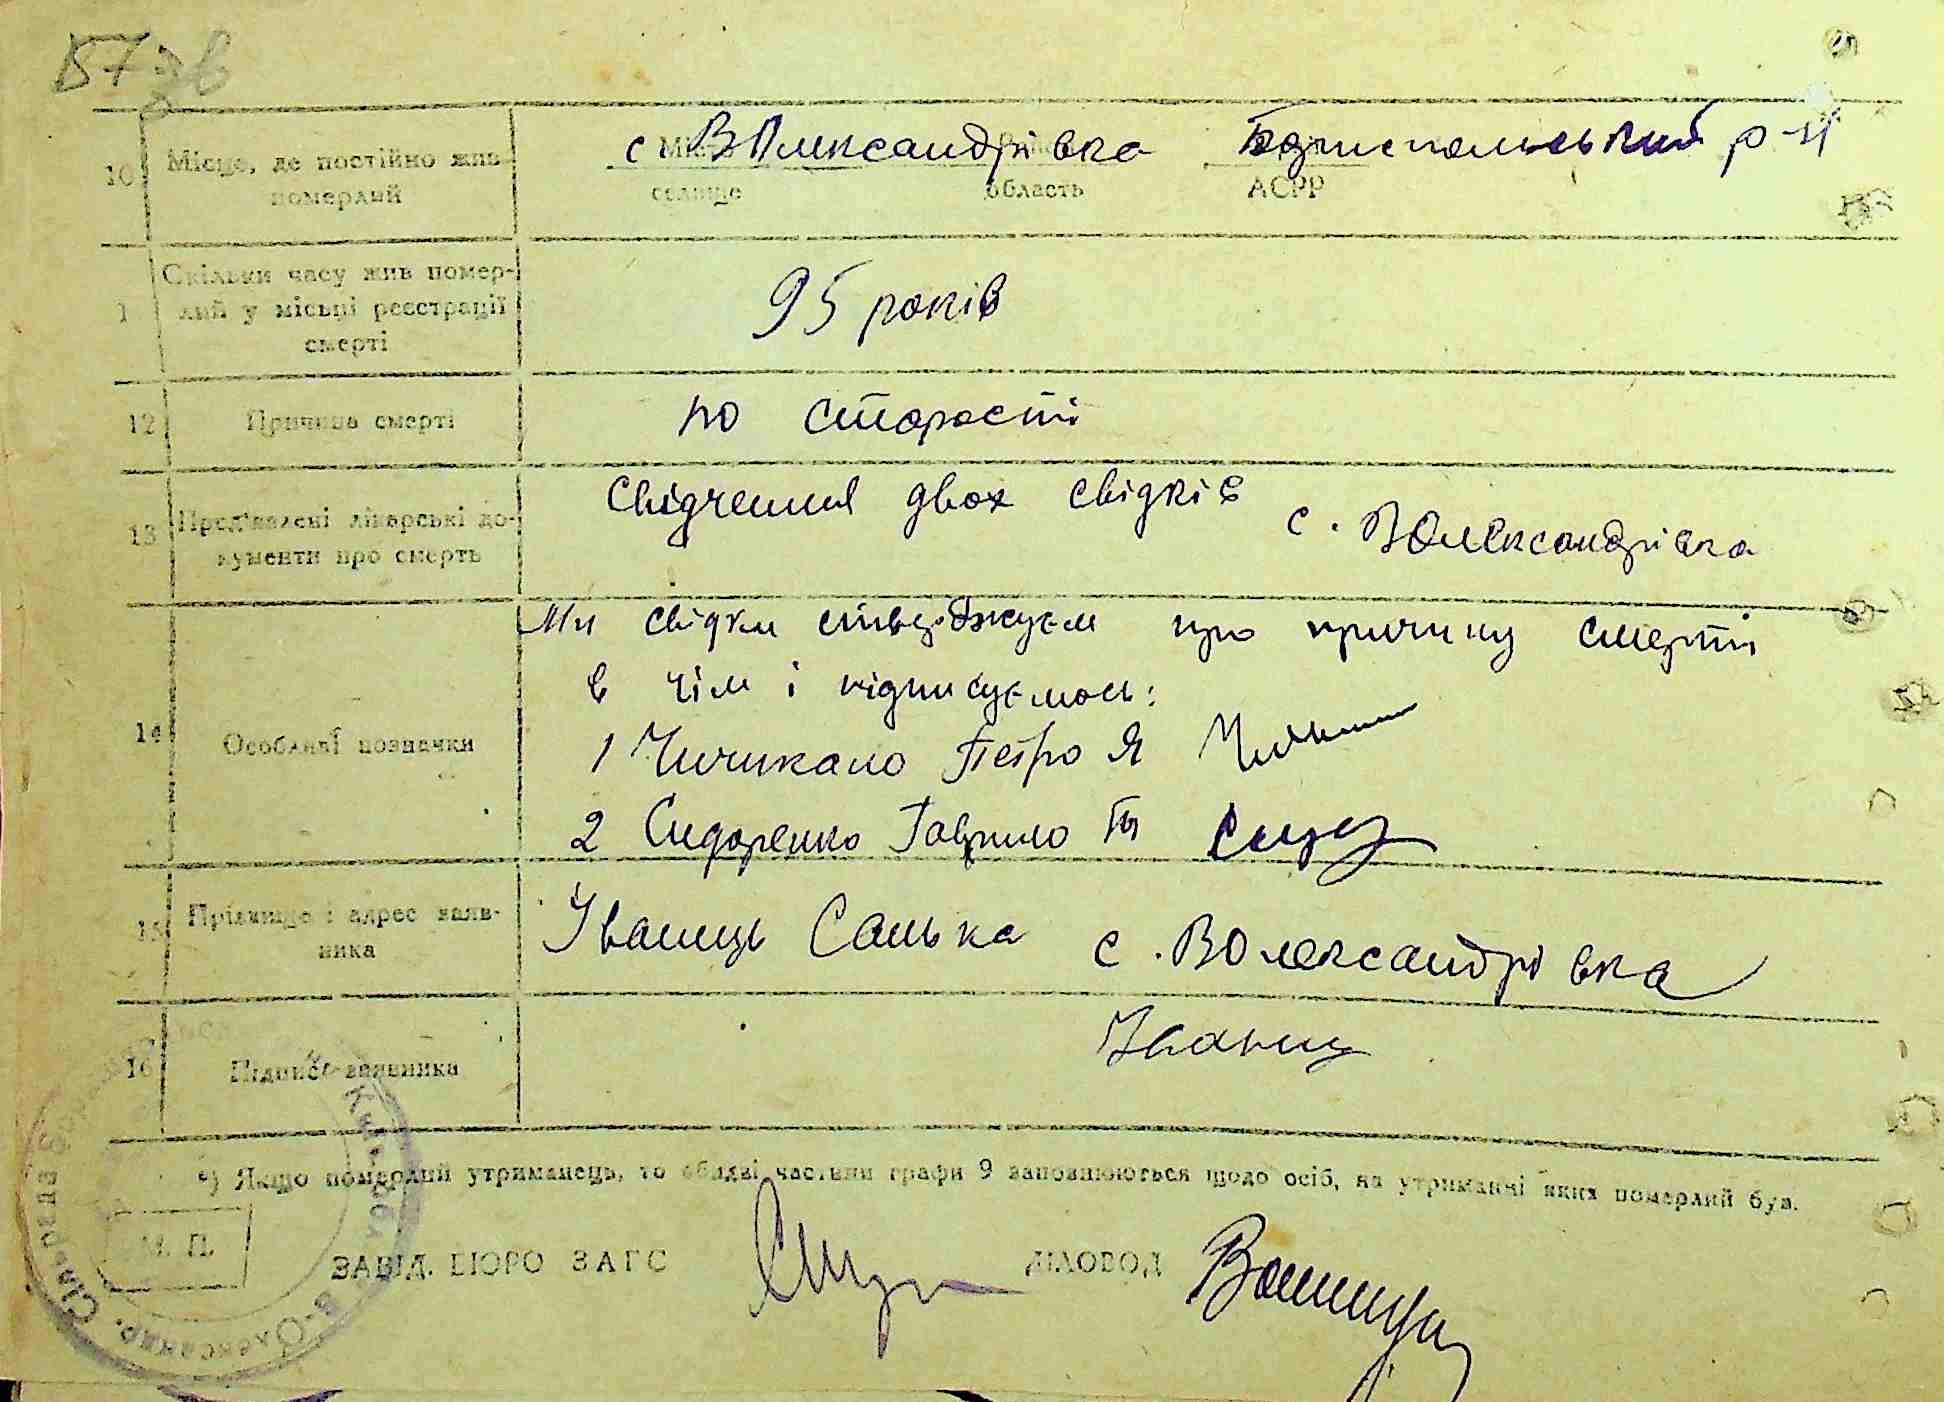 10 Місце, де постійно жив померлий
с ВОлександрівка Бориспольський р-н
Місто
селище область АСРР
1 Скільки часу жив помер-
лий у місьці реєстрації
смерті
95 років
12 Причина смерті
по старості
13 Пред'явлені лікарські до-
кументи про смерть
Свідчення двох свідків с. ВОлександрівка
14 Особливі позначки
Ми свідки стверджуєм про причину смерті
в чім і підписуємось:
1 Чичикало Петро Я
2 Сидоренко Гаврило
15 Прізвище і адрес заяв-
ника
Іваниць Санька с. ВОлександрівка
16 Підпис заявника
Іваниц
*) Якщо померлий утриманець, то обидві частини графи 9 заповнюються щодо осіб, на утриманні яких померлий був.
М. П.
ЗАВІД. БЮРО ЗАГС ДІЛОВОД
Сільрада В-Олександр. Київ. обл.